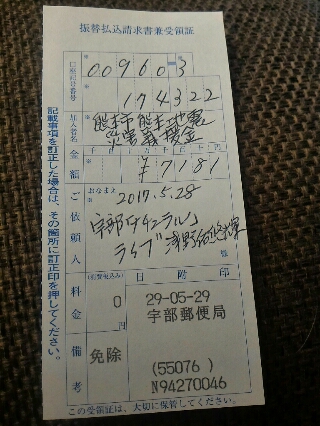 振替払込請求書兼受領証
口座記号番号
00960-3
174322
加入者名
熊本市熊本地震
災害義援金
金額
千 百 十 万 千 百 十 円
¥7181
ご依頼人
おなまえ
2017.5.28
宇部「ナチュラル」
ライブ
様
料金
(消費税込み)
0
円
日 附 印
29-05-29
宇部郵便局
備考
免除
(55076 )
N94270046
この受領証は、大切に保管してください。
記載事項を訂正した場合は、その箇所に訂正印を押してください。